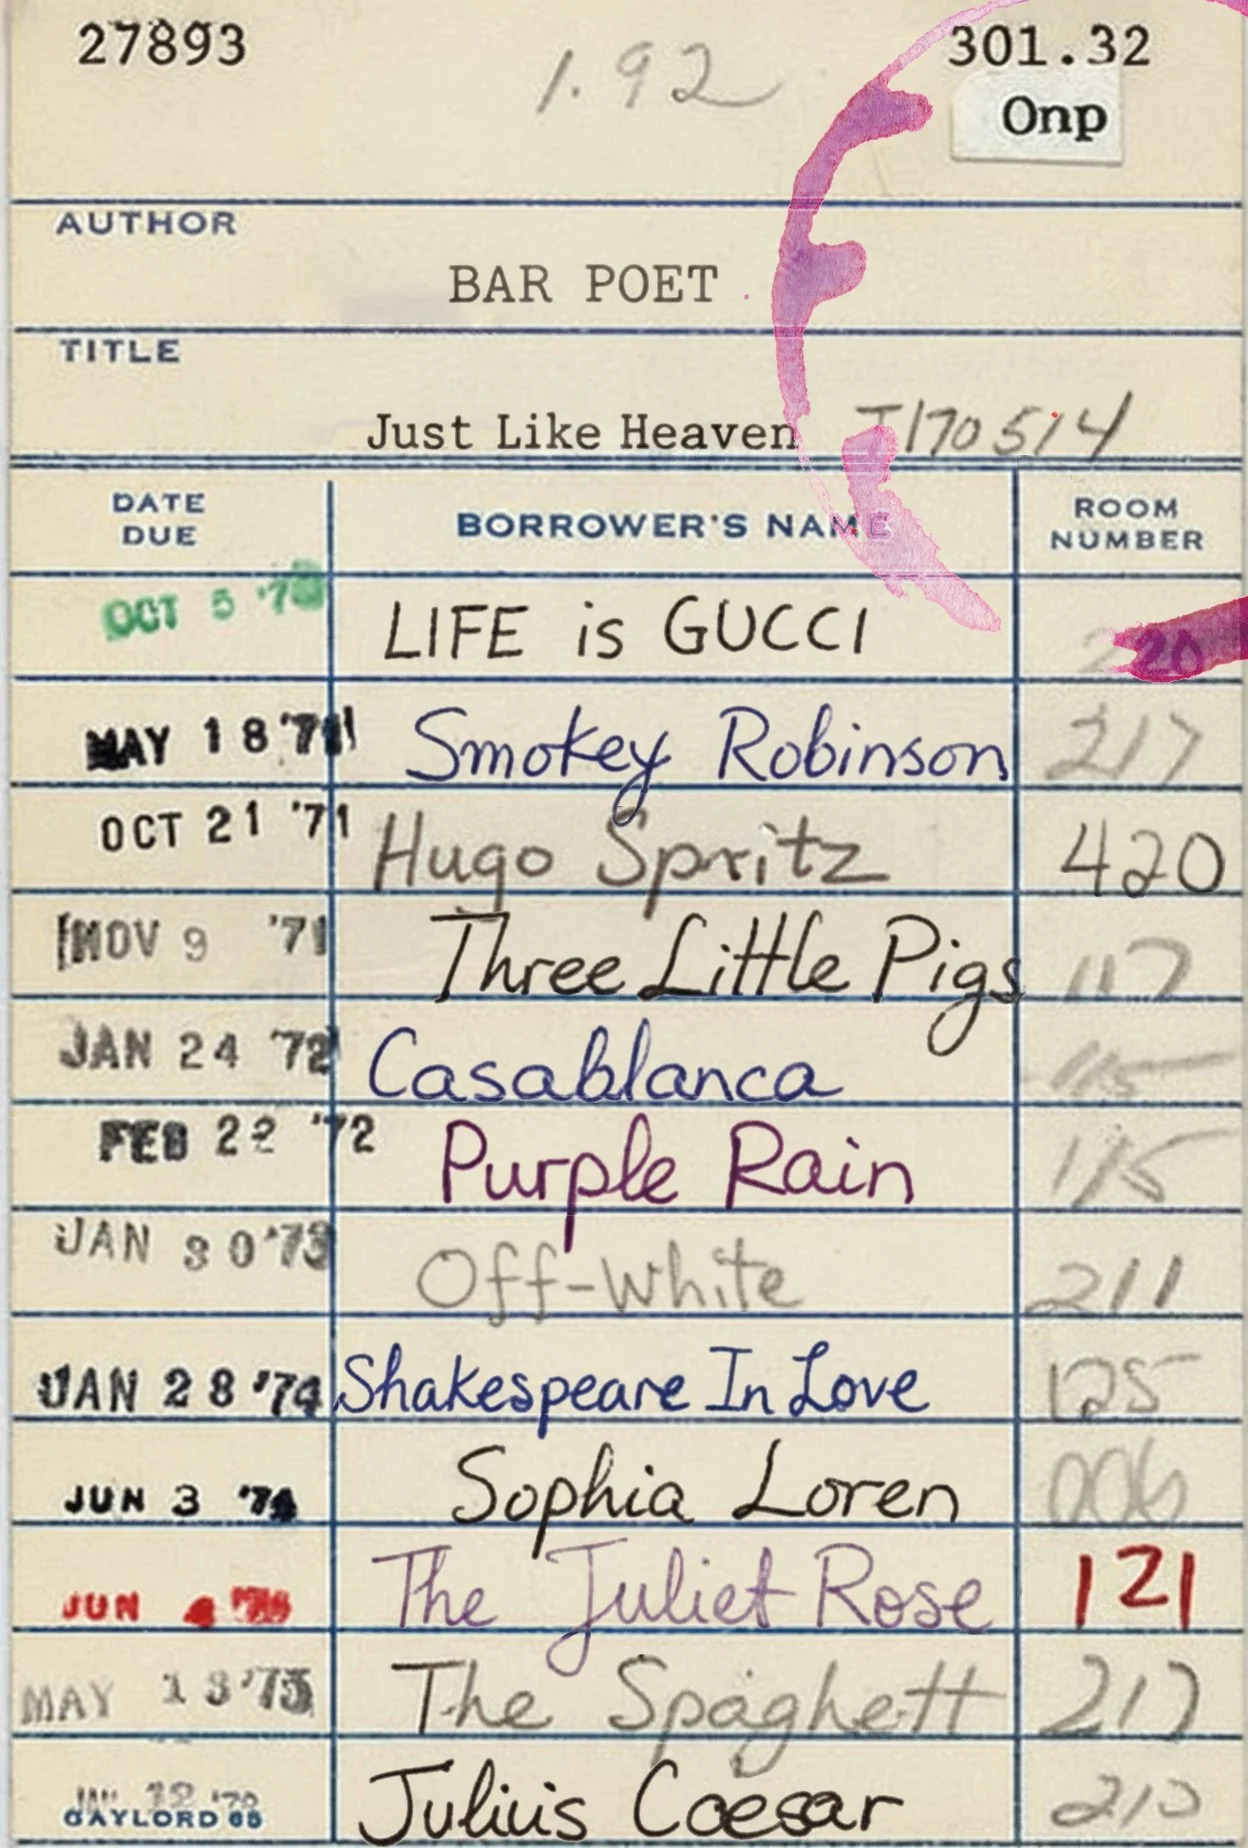 27893 1.92 301.32
Onp
AUTHOR
BAR POET
TITLE
Just Like Heaven T170514
DATE DUE BORROWER'S NAME ROOM NUMBER
OCT 5 LIFE is GUCCI 220
MAY 18 '71 Smokey Robinson 217
OCT 21 '71 Hugo Spritz 420
NOV 9 '71 Three Little Pigs 117
JAN 24 '72 Casablanca 115
FEB 22 '72 Purple Rain 115
JAN 30 '73 Off-White 211
JAN 28 '74 Shakespeare In Love 125
JUN 3 '74 Sophia Loren 006
JUN 4 The Juliet Rose 121
MAY 13 '75 The Spaghett 217
Julius Caesar
GAYLORD 65